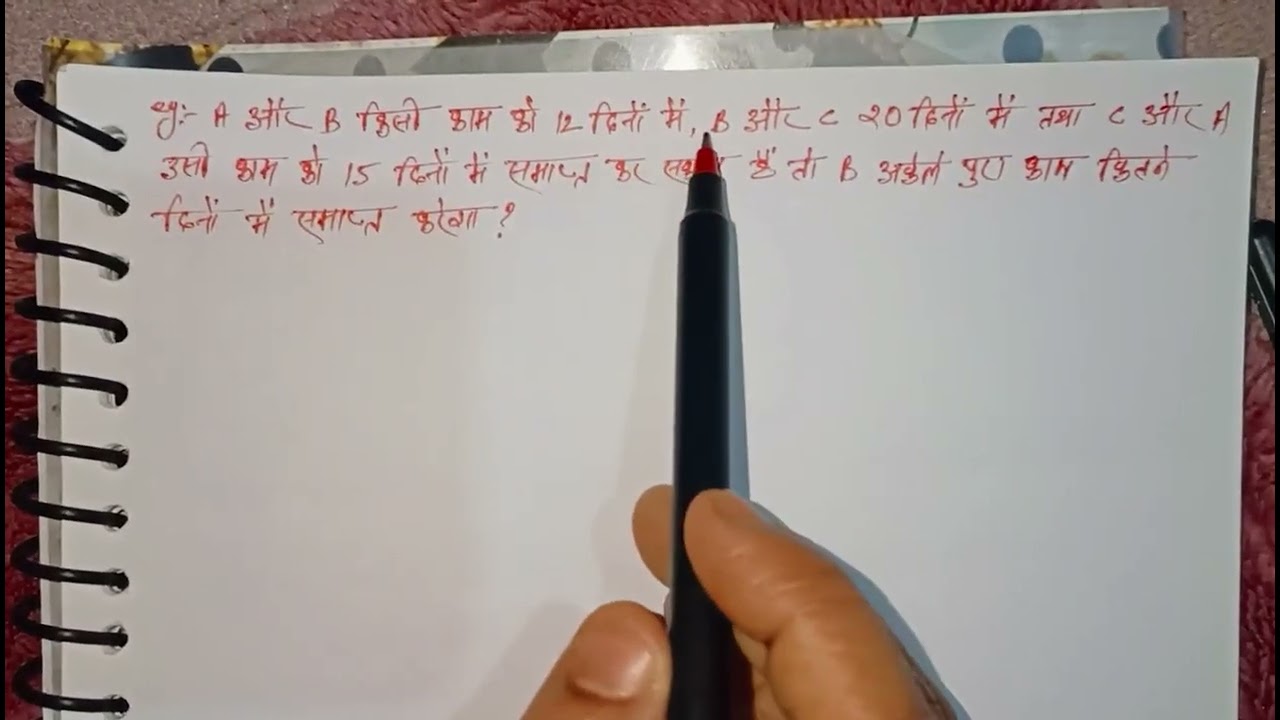 eg:- A और B किसी काम को 12 दिनों में, B और C 20 दिनों में तथा C और A
उसी काम को 15 दिनों में समाप्त कर हैं तो B अकेले पुरा काम कितने
दिनों में समाप्त करेगा ?